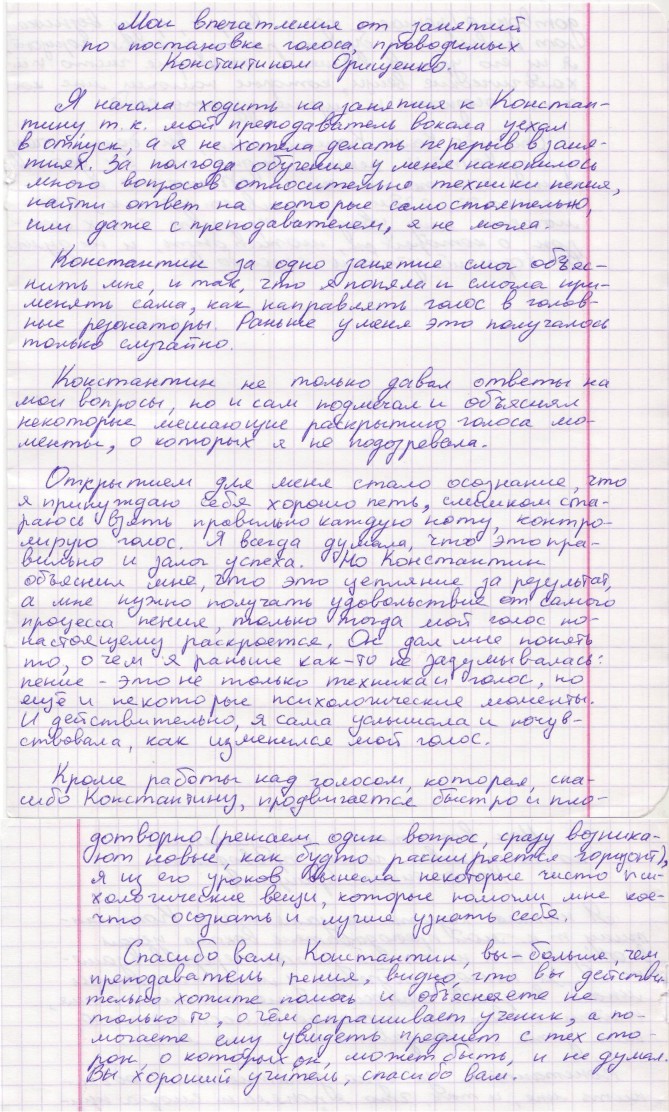 Мои впечатления от занятий
по постановке голоса, проводимых
Константином Орищенко.
Я начала ходить на занятия к Констан-
тину, т.к. мой преподаватель вокала уехал
в отпуск, а я не хотела делать перерыв в заня-
тиях. За полгода обучения у меня накопилось
много вопросов относительно техники пения,
найти ответ на которые самостоятельно,
или даже с преподавателем, я не могла.
Константин за одно занятие смог объяс-
нить мне, и так, что я поняла и смогла при-
менять сама, как направлять голос в голов-
ные резонаторы. Раньше у меня это получалось
только случайно.
Константин не только давал ответы на
мои вопросы, но и сам подмечал и объяснял
некоторые мешающие раскрытию голоса мо-
менты, о которых я не подозревала.
Открытием для меня стало осознание, что
я принуждаю себя хорошо петь, слишком ста-
раюсь взять правильно каждую ноту, контро-
лирую голос. Я всегда думала, что это пра-
вильно и залог успеха. Но Константин
объяснил мне, что это цепляние за результат,
а мне нужно получать удовольствие от самого
процесса пения, только тогда мой голос по-
настоящему раскроется. Он дал мне понять
то, о чем я раньше как-то не задумывалась:
пение - это не только техника и голос, но
ещё и некоторые психологические моменты.
И действительно, я сама услышала и почув-
ствовала, как изменился мой голос.
Кроме работы над голосом, которая, спа-
сибо Константину, продвигается быстро и пло-
дотворно (решаем один вопрос, сразу возника-
ют новые, как будто расширяется горизонт),
я из его уроков вынесла некоторые чисто пси-
хологические вещи, которые помогли мне кое-
что осознать и лучше узнать себя.
Спасибо вам, Константин, вы - больше, чем
преподаватель пения, видно, что вы действи-
тельно хотите помочь и объясняете не
только то, о чём спрашивает ученик, а по-
могаете ему увидеть предмет с тех сто-
рон, о которых он, может быть, и не думал.
Вы хороший учитель, спасибо вам.